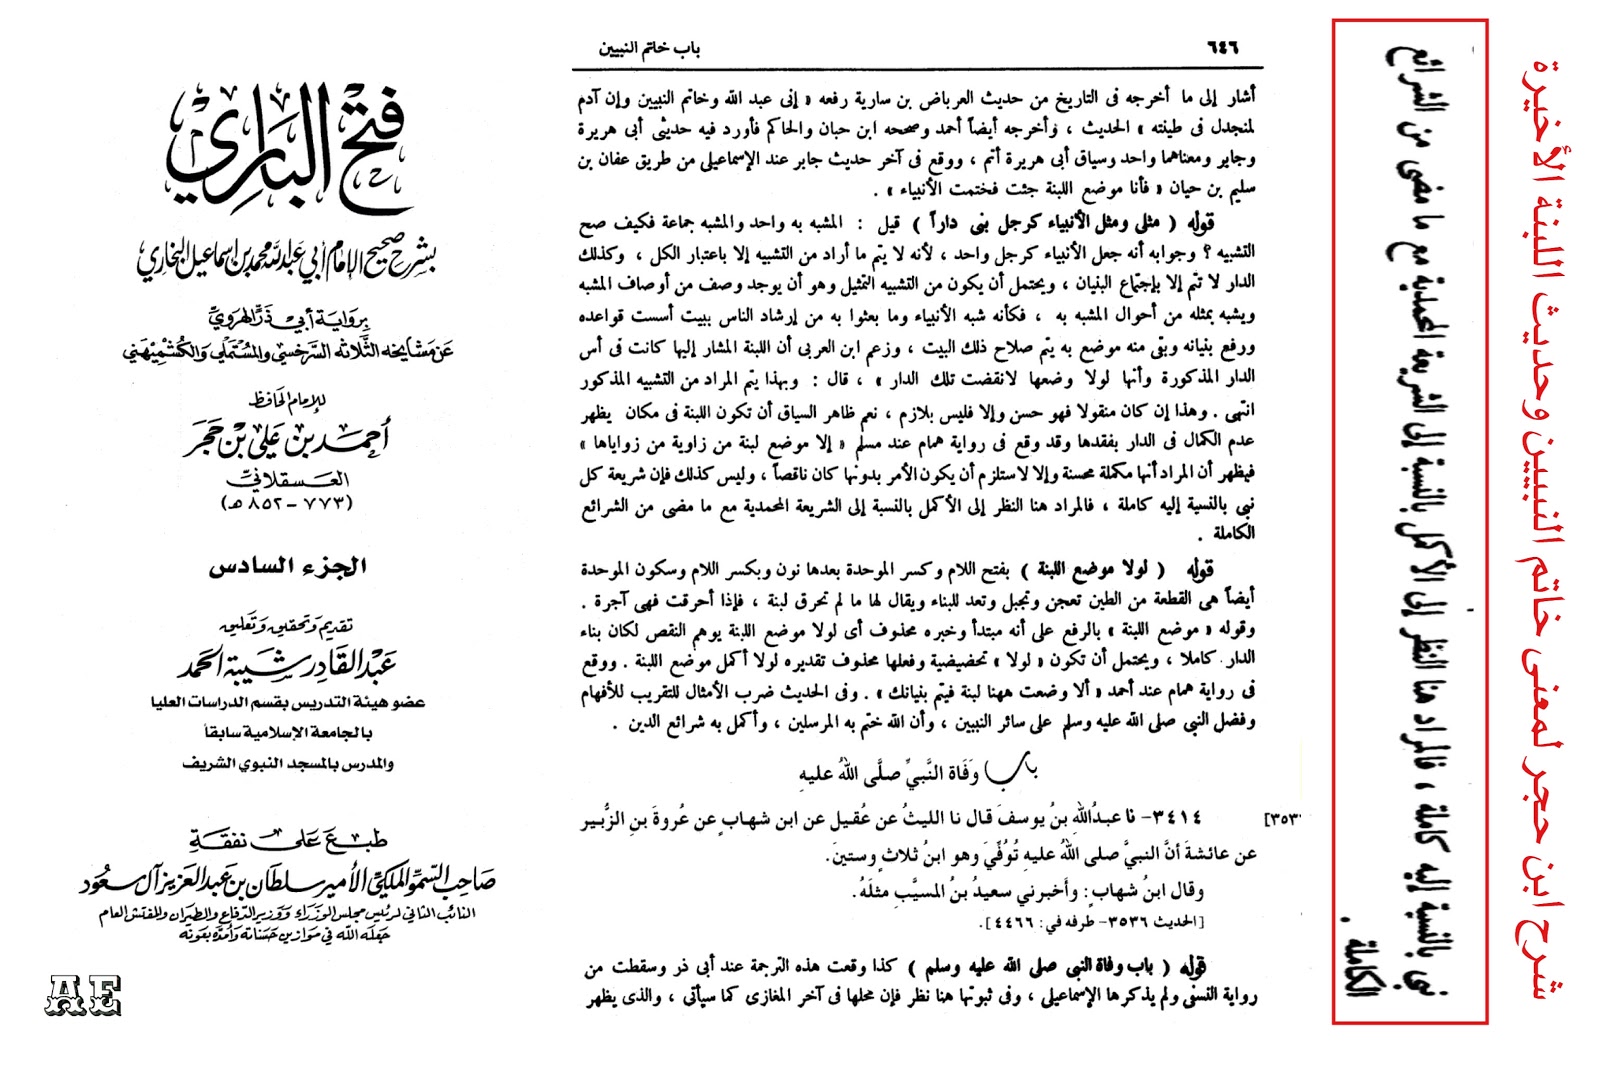 فتح الباري
بشرح صحيح الإمام أبي عبد الله محمد بن إسماعيل البخاري
برواية أبي ذر الهروي
عن مشايخه الثلاثة السرخسي والمستملي والكشميهني
للإمام الحافظ
أحمد بن علي بن حجر
العسقلاني
(٧٧٣ - ٨٥٢ هـ)
الجزء السادس
تقديم وتحقيق وتعليق
عبد القادر شيبة الحمد
عضو هيئة التدريس بقسم الدراسات العليا
بالجامعة الإسلامية سابقاً
والمدرس بالمسجد النبوي الشريف
طبع على نفقة
صاحب السمو الملكي الأمير سلطان بن عبد العزيز آل سعود
النائب الثاني لرئيس مجلس الوزراء ووزير الدفاع والطيران والمفتش العام
جعله الله في موازين حسناته وأمده بعونه
AE
٦٤٦
باب خاتم النبيين
أشار إلى ما أخرجه فى التاريخ من حديث العرباض بن سارية رفعه « إنى عبد الله وخاتم النبيين وإن آدم
لمنجدل فى طينته » الحديث ، وأخرجه أيضاً أحمد وصححه ابن حبان والحاكم فأورد فيه حديثى أبى هريرة
وجابر ومعناهما واحد وسياق أبى هريرة أتم ، ووقع فى آخر حديث جابر عند الإسماعيلى من طريق عفان بن
سليم بن حيان « فأنا موضع اللبنة جئت فختمت الأنبياء » .
قوله ( مثلى ومثل الأنبياء كرجل بنى داراً ) قيل : المشبه به واحد والمشبه جماعة فكيف صح
التشبيه ؟ وجوابه أنه جعل الأنبياء كرجل واحد ، لأنه لا يتم ما أراد من التشبيه إلا باعتبار الكل ، وكذلك
الدار لا تتم إلا بإجتماع البنيان ، ويحتمل أن يكون من التشبيه التمثيل وهو أن يوجد وصف من أوصاف المشبه
ويشبه بمثله من أحوال المشبه به ، فكأنه شبه الأنبياء وما بعثوا به من إرشاد الناس ببيت أسست قواعده
ورفع بنيانه وبقى منه موضع به يتم صلاح ذلك البيت ، وزعم ابن العربى أن اللبنة المشار إليها كانت فى أس
الدار المذكورة وأنها لولا وضعها لانقضت تلك الدار » ، قال : وبهذا يتم المراد من التشبيه المذكور
انتهى . وهذا إن كان منقولا فهو حسن وإلا فليس بلازم ، نعم ظاهر السياق أن تكون اللبنة فى مكان يظهر
عدم الكمال فى الدار بفقدها وقد وقع فى رواية همام عند مسلم « إلا موضع لبنة من زاوية من زواياها »
فيظهر أن المراد أنها مكملة محسنة وإلا لاستلزم أن يكون الأمر بدونها كان ناقصاً ، وليس كذلك فإن شريعة كل
نبى بالنسبة إليه كاملة ، فالمراد هنا النظر إلى الأكمل بالنسبة إلى الشريعة المحمدية مع ما مضى من الشرائع
الكاملة .
قوله ( لولا موضع اللبنة ) بفتح اللام وكسر الموحدة بعدها نون وبكسر اللام وسكون الموحدة
أيضاً هى القطعة من الطين تعجن وتجبل وتعد للبناء ويقال لها ما لم تحرق لبنة ، فإذا أحرقت فهى آجرة .
وقوله « موضع اللبنة » بالرفع على أنه مبتدأ وخبره محذوف أى لولا موضع اللبنة يوهم النقص لكان بناء
الدار كاملا ، ويحتمل أن تكون « لولا » تحضيضية وفعلها محذوف تقديره لولا أكمل موضع اللبنة . ووقع
فى رواية همام عند أحمد « ألا وضعت ههنا لبنة فيتم بنيانك » . وفى الحديث ضرب الأمثال للتقريب للأفهام
وفضل النبى صلى الله عليه وسلم على سائر النبيين ، وأن الله ختم به المرسلين ، وأكمل به شرائع الدين .
باب وَفَاة النَّبيِّ صلَّى اللهُ عليهِ
٣٤١٤- نا عبدُاللهِ بنُ يوسفَ قال نا الليثُ عن عُقيل عن ابن شهاب عن عُروةَ بنِ الزُّبير
[٣٥٣
عن عائشةَ أنَّ النبيَّ صلى اللهُ عليهِ تُوُفِّيَ وهو ابنُ ثلاثٍ وستينَ.
وقال ابنُ شهابٍ: وأخبرني سعيدُ بنُ المسيَّب مثلَهُ.
[الحديث ٣٥٣٦- طرفه في: ٤٤٦٦].
قوله ( باب وفاة النبى صلى الله عليه وسلم ) كذا وقعت هذه الترجمة عند أبى ذر وسقطت من
رواية النسفى ولم يذكرها الإسماعيلى ، وفى ثبوتها هنا نظر فإن محلها فى آخر المغازى كما سيأتى ، والذى يظهر
نبى بالنسبة إليه كاملة ، فالمراد هنا النظر إلى الأكمل بالنسبة إلى الشريعة المحمدية مع ما مضى من الشرائع
الكاملة .
شرح ابن حجر لمعنى خاتم النبيين وحديث اللبنة الأخيرة